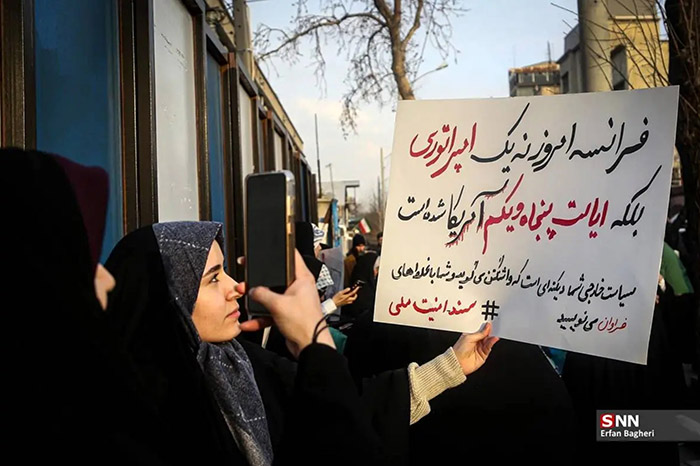 فرانسه امروز نه یک امپراتوری
بلکه ایالت پنجاه و یکم آمریکا شده است
سیاست خارجی شما دیکته‌ای است که واشنگتن می‌گوید و شما با غلط‌های
فراوان می‌نویسید #سند_امنیت_ملی
SNN
Erfan Bagheri